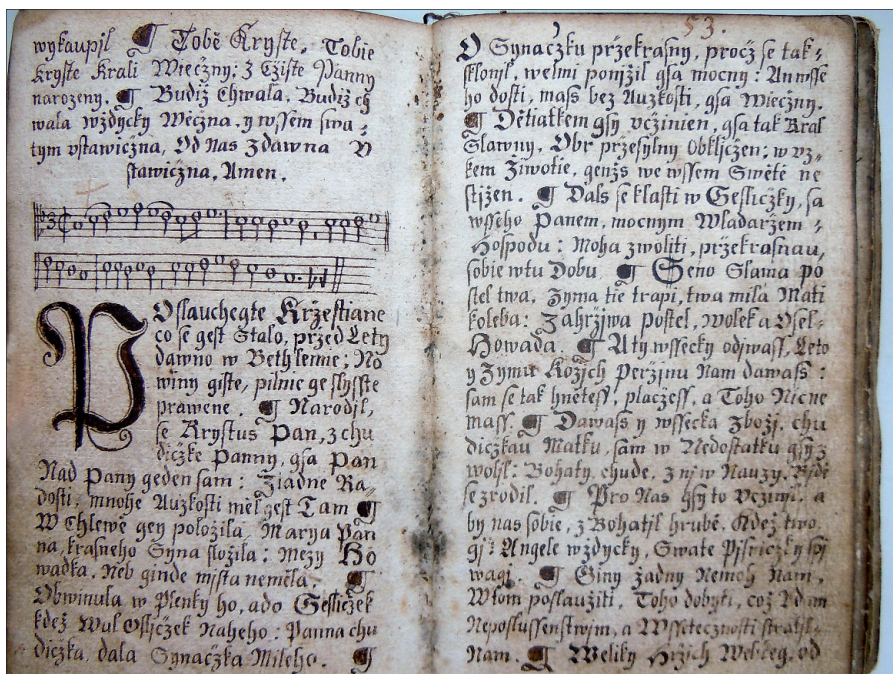 wykaupjl ¶ Tobě Kryste, Tobie
Kryste Krali Wiečzny: Z Čžiste Panny
narozeny. ¶ Budiž Chwala, Budiž ch
wala wždycky Wěčzna, y wssěm swa-
tym vstawičzna, Od Nas Zdawna V
stawičzna, Amen.
POslauchegte Kržestiane
čo se gest Stalo, pržed Lety
dawno w Bethlemě; No
winy giste, pilnie ge slysste
prawene. ¶ Narodjl,
se Krystus Pan, z chu
dičžke Panny, gsa Pan
Nad Pany geden sam: Žiadne Ra-
dosti, mnohe Aužkosti měl gest Tam ¶
W Chlewě gey položila, Marya Pan
na, krasneho Syna složila: Mezy Ho
wadka. Neb ginde mjsta neměla. ¶
Obwinula w Plenky ho, ado Gesličžek
kdež Wul Osljčžek Naheho: Panna chu
dičžka, dala Synačžka Mileho. ¶
53.
O Synačžku pržekrasny, pročž se tak-
sklonjl, welmi ponjžil gsa mocny: An wsse
ho dosti, mass bez Aužkosti, gsa Wiečžny.
¶ Dětiatkem gsy včžinien, gsa tak Kral
Slawny, Obr pržesylny Obkljčžen: w vz-
kem Žiwotie, genžs we wssem Swětě ne
stjžen. ¶ Dals se klasti w Gesličžky, sa
wsseho Panem, mocnym Wladaržem
Hospodu: Moha zwoliti, pržekrasnau,
sobie wtu Dobu. ¶ Seno Slama po
stel twa, Zyma tie trapi, twa mila Mati
koleba: Zahržjwa Postel, Wolek a Osel-
Howada. ¶ A ty wssecky odjwass, Leto
y Zymu Kožjch Peržjnu Nam dawass:
sam se tak hnětess, plačžess, a Toho Nicne
mass. ¶ Dawass y wssecka Zbožj, chu
dičžkau Matku, sam w Nedostatku gsy z
woljl: Bohaty, chude, z njw Nauzy,
se zrodil. ¶ Pro Nas gsy to včžinil, a
by nas sobie, z Bohatjl hrubě. Kdež two
gj Angele wždycky, Swate Pjsničžky spj
wagj. ¶ Giny žadny Nemoh Nam,
Wtom poslaužiti, Toho dobyti, což Adam
Neposlussenstwjm, a Wsseteczností stratjl
Nam. ¶ Weliky Hržjch od